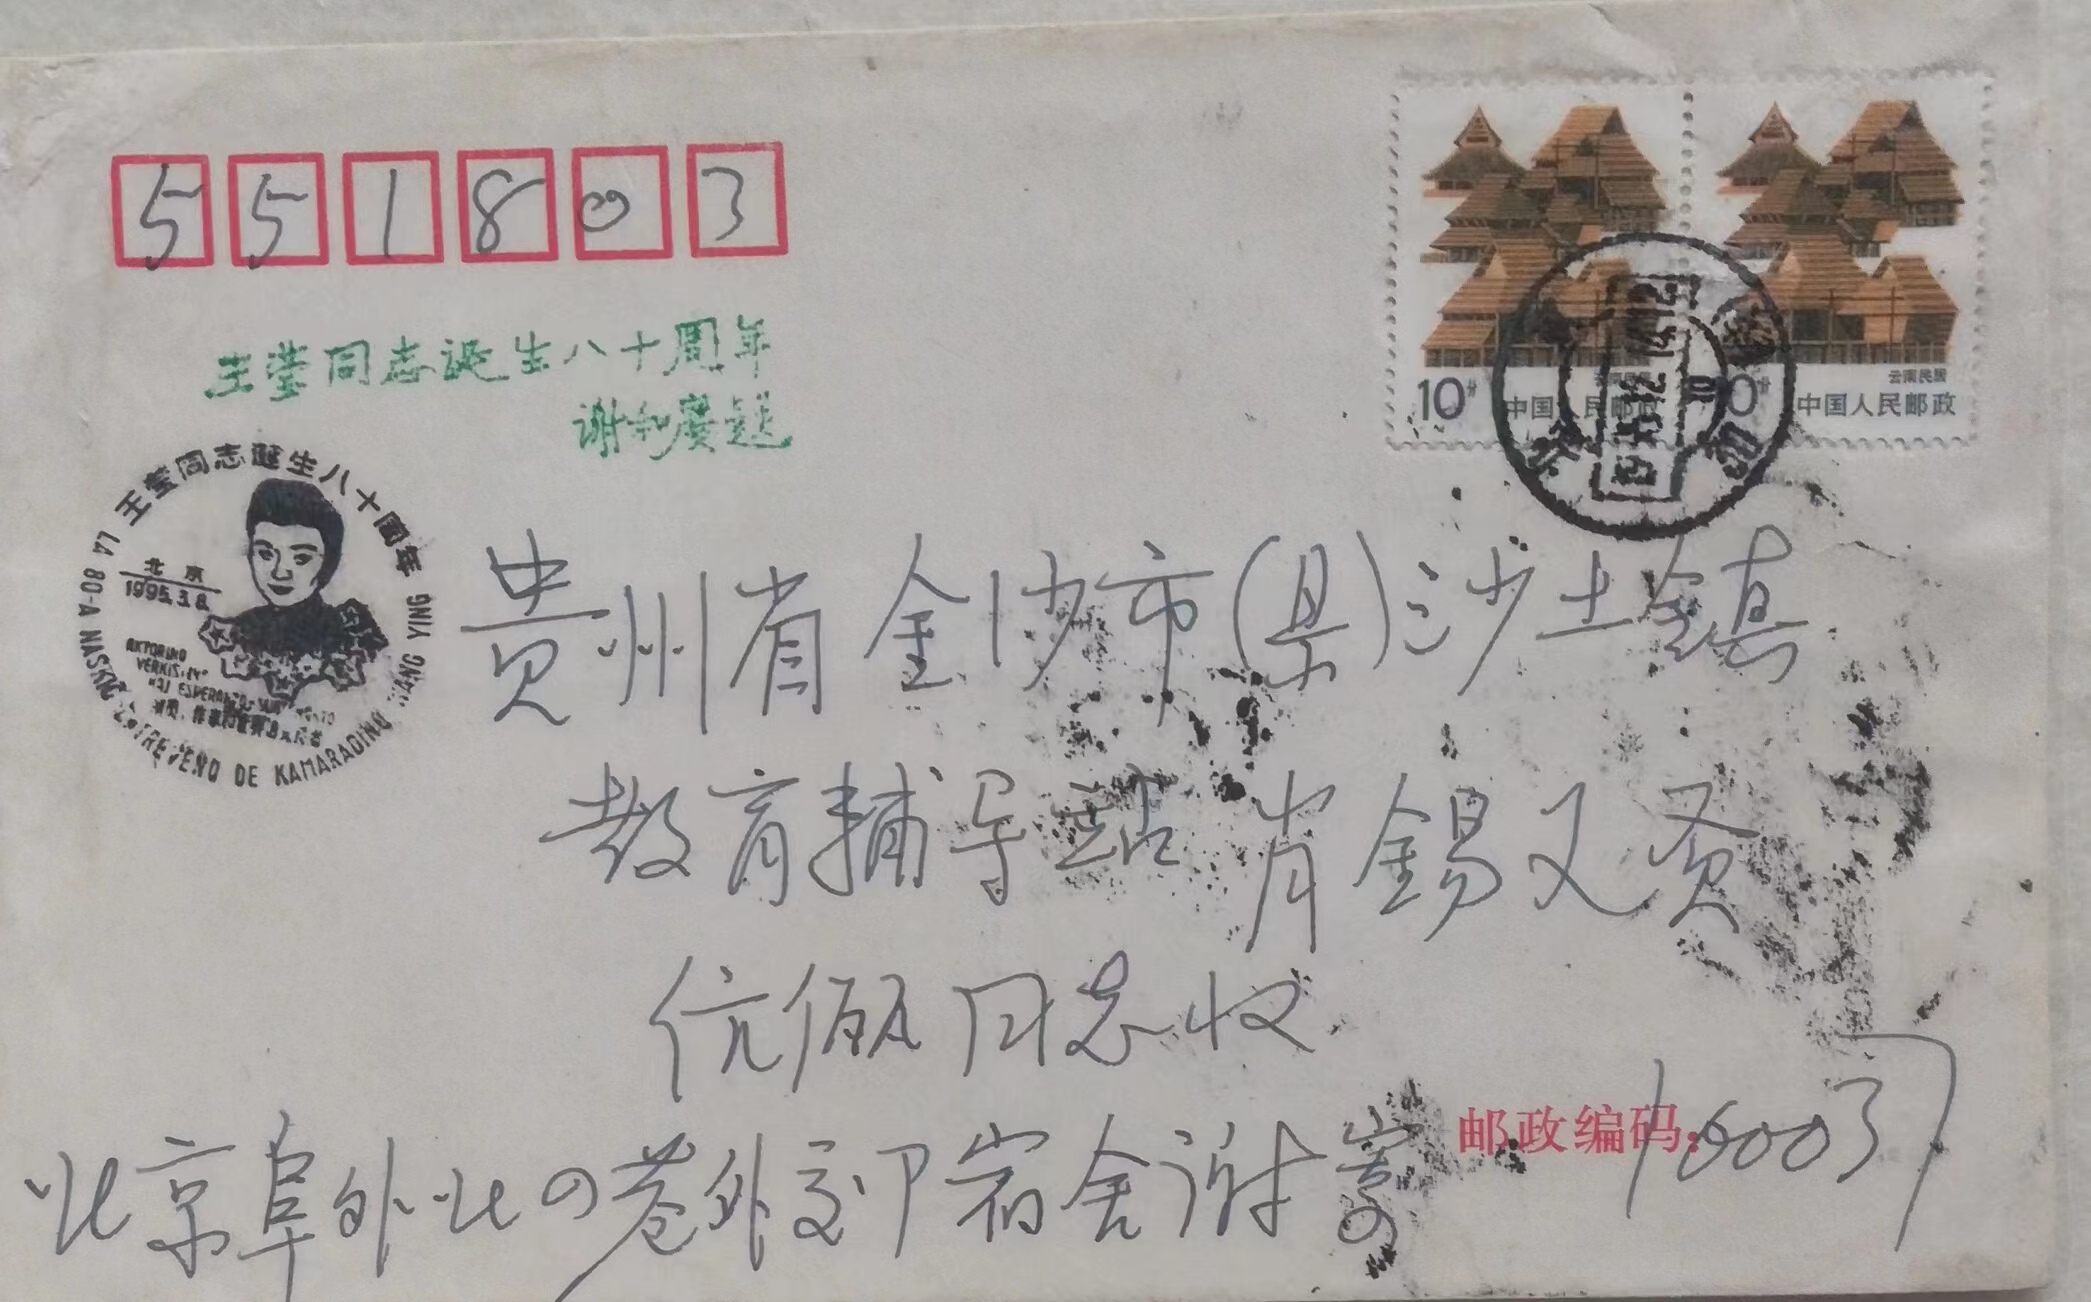 551803
王莹同志诞生八十周年
谢和赓题
王莹同志诞生八十周年
LA 80-A NASKIĜ DE KAMARADINO WANG YING
北京
1995.3.8.
AKTORINO
VERKIST
KAJ ESPERANT
演员、作家和世界语
10分 中国人民邮政
云南民居
中国人民邮政
北京
贵州省金沙市(县)沙土镇
教育辅导站 肖锡又贡
伉俪同志收
邮政编码: 100037
北京阜外北四巷外交部宿舍谢寄